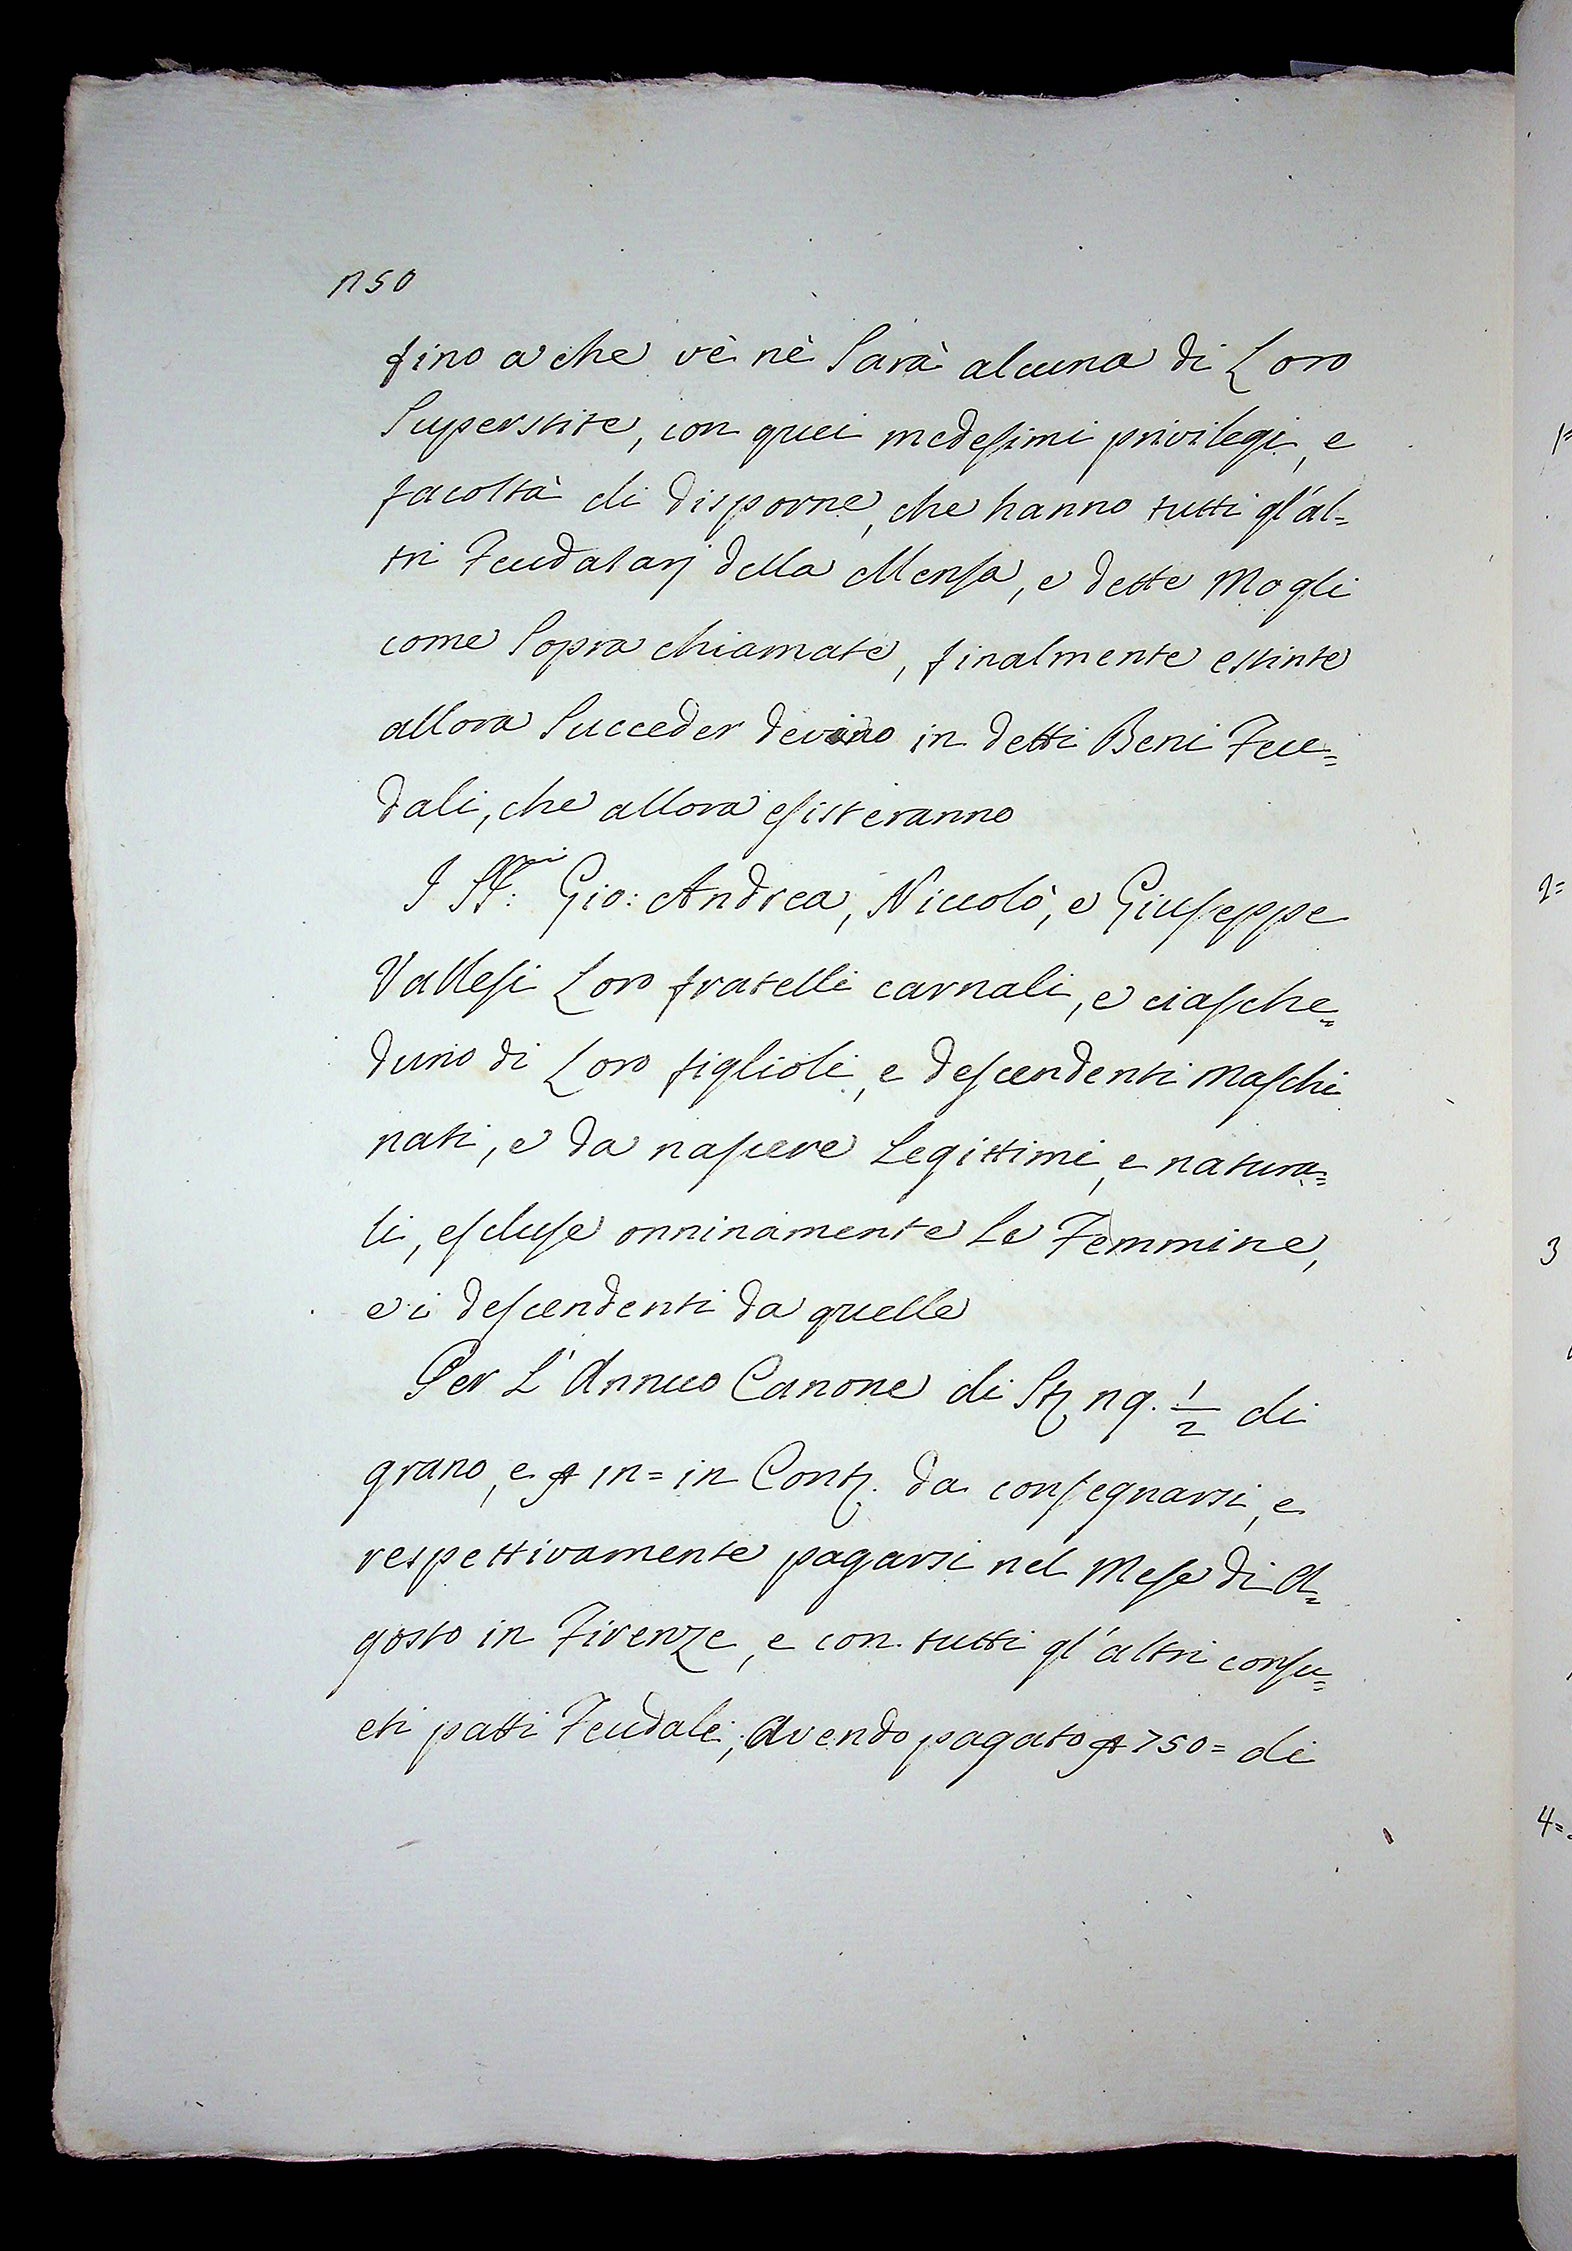 150
fino a che vè nè Sarà alcuna di Loro
Superstite, con quei medesimi privilegi, e
facoltà di disporne, che hanno tutti gl'al=
tri Feudatarj della Mensa, e dette Mogli
come Sopra chiamate, finalmente estinte
allora Succeder devino in detti Beni Feu=
dali, che allora esisteranno
I SS:ri Gio: Andrea, Niccolò, e Giuseppe
Vallesi Loro fratelli carnali, e ciasche=
duno di Loro figlioli, e descendenti Maschi
nati, e da nascere Legittimi, e natura=
li, escluse onninamente Le Femmine,
e i descendenti da quelle
Per L'Annuo Canone di St 19. 1/2 di
grano, e in Cont. da consegnarsi, e
respettivamente pagarsi nel Mese di A=
gosto in Firenze, e con tutti gl'altri consu=
eti patti Feudali; Avendo pagato 750= di
2=
3
4=